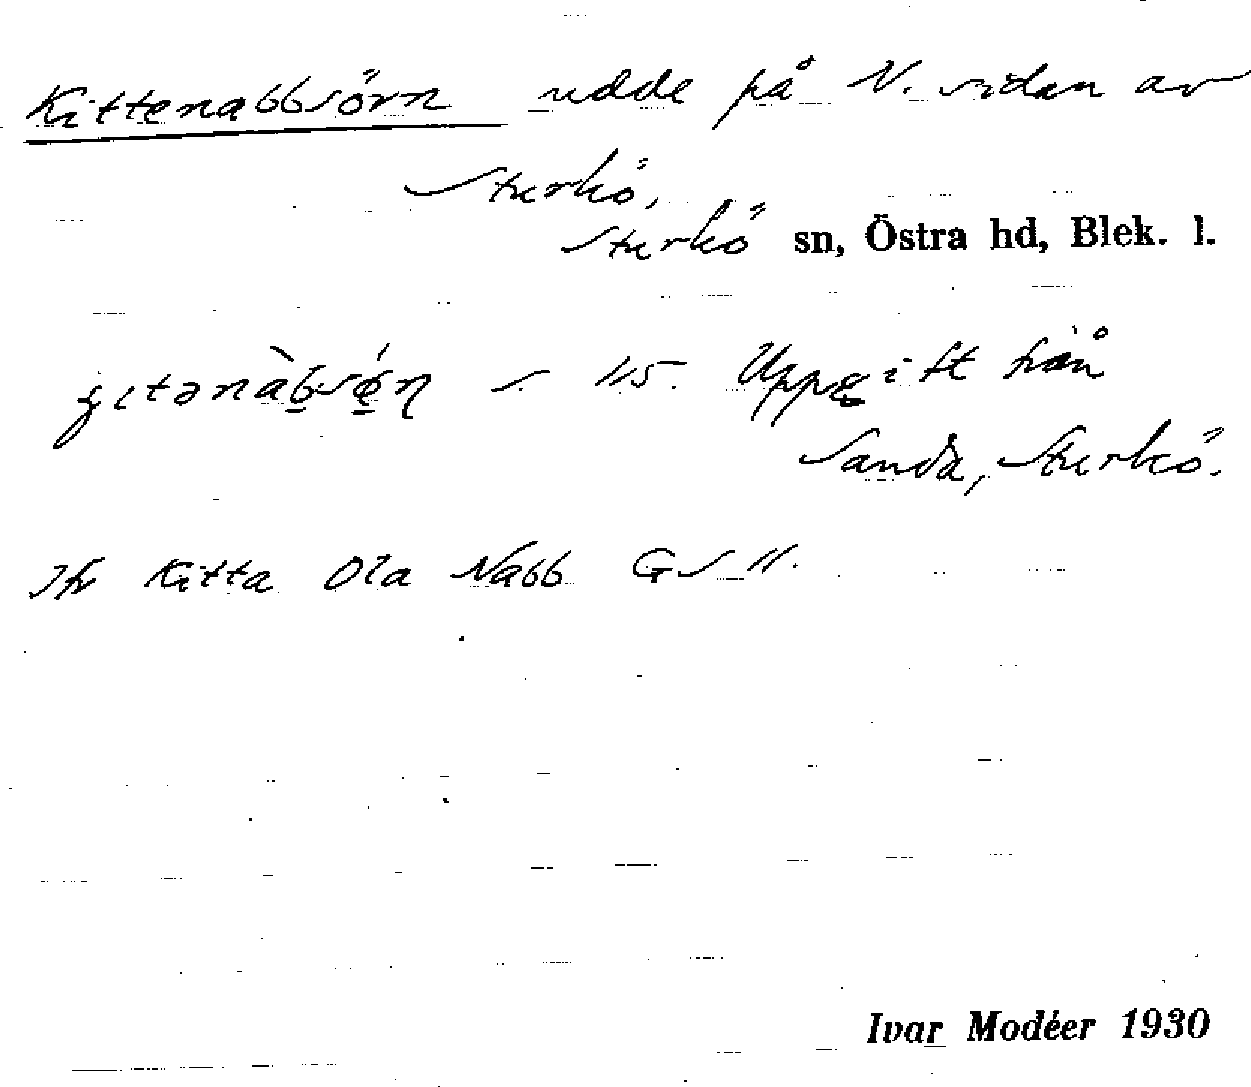 Kittenabbsörn udde på N. sidan av
Sturkö,
Sturkö sn, Östra hd, Blek. l.
s. 115. Uppgift från
Sanda, Sturkö.
Jfr Kitta Ola Nabb GS 11.
Ivar Modéer 1930